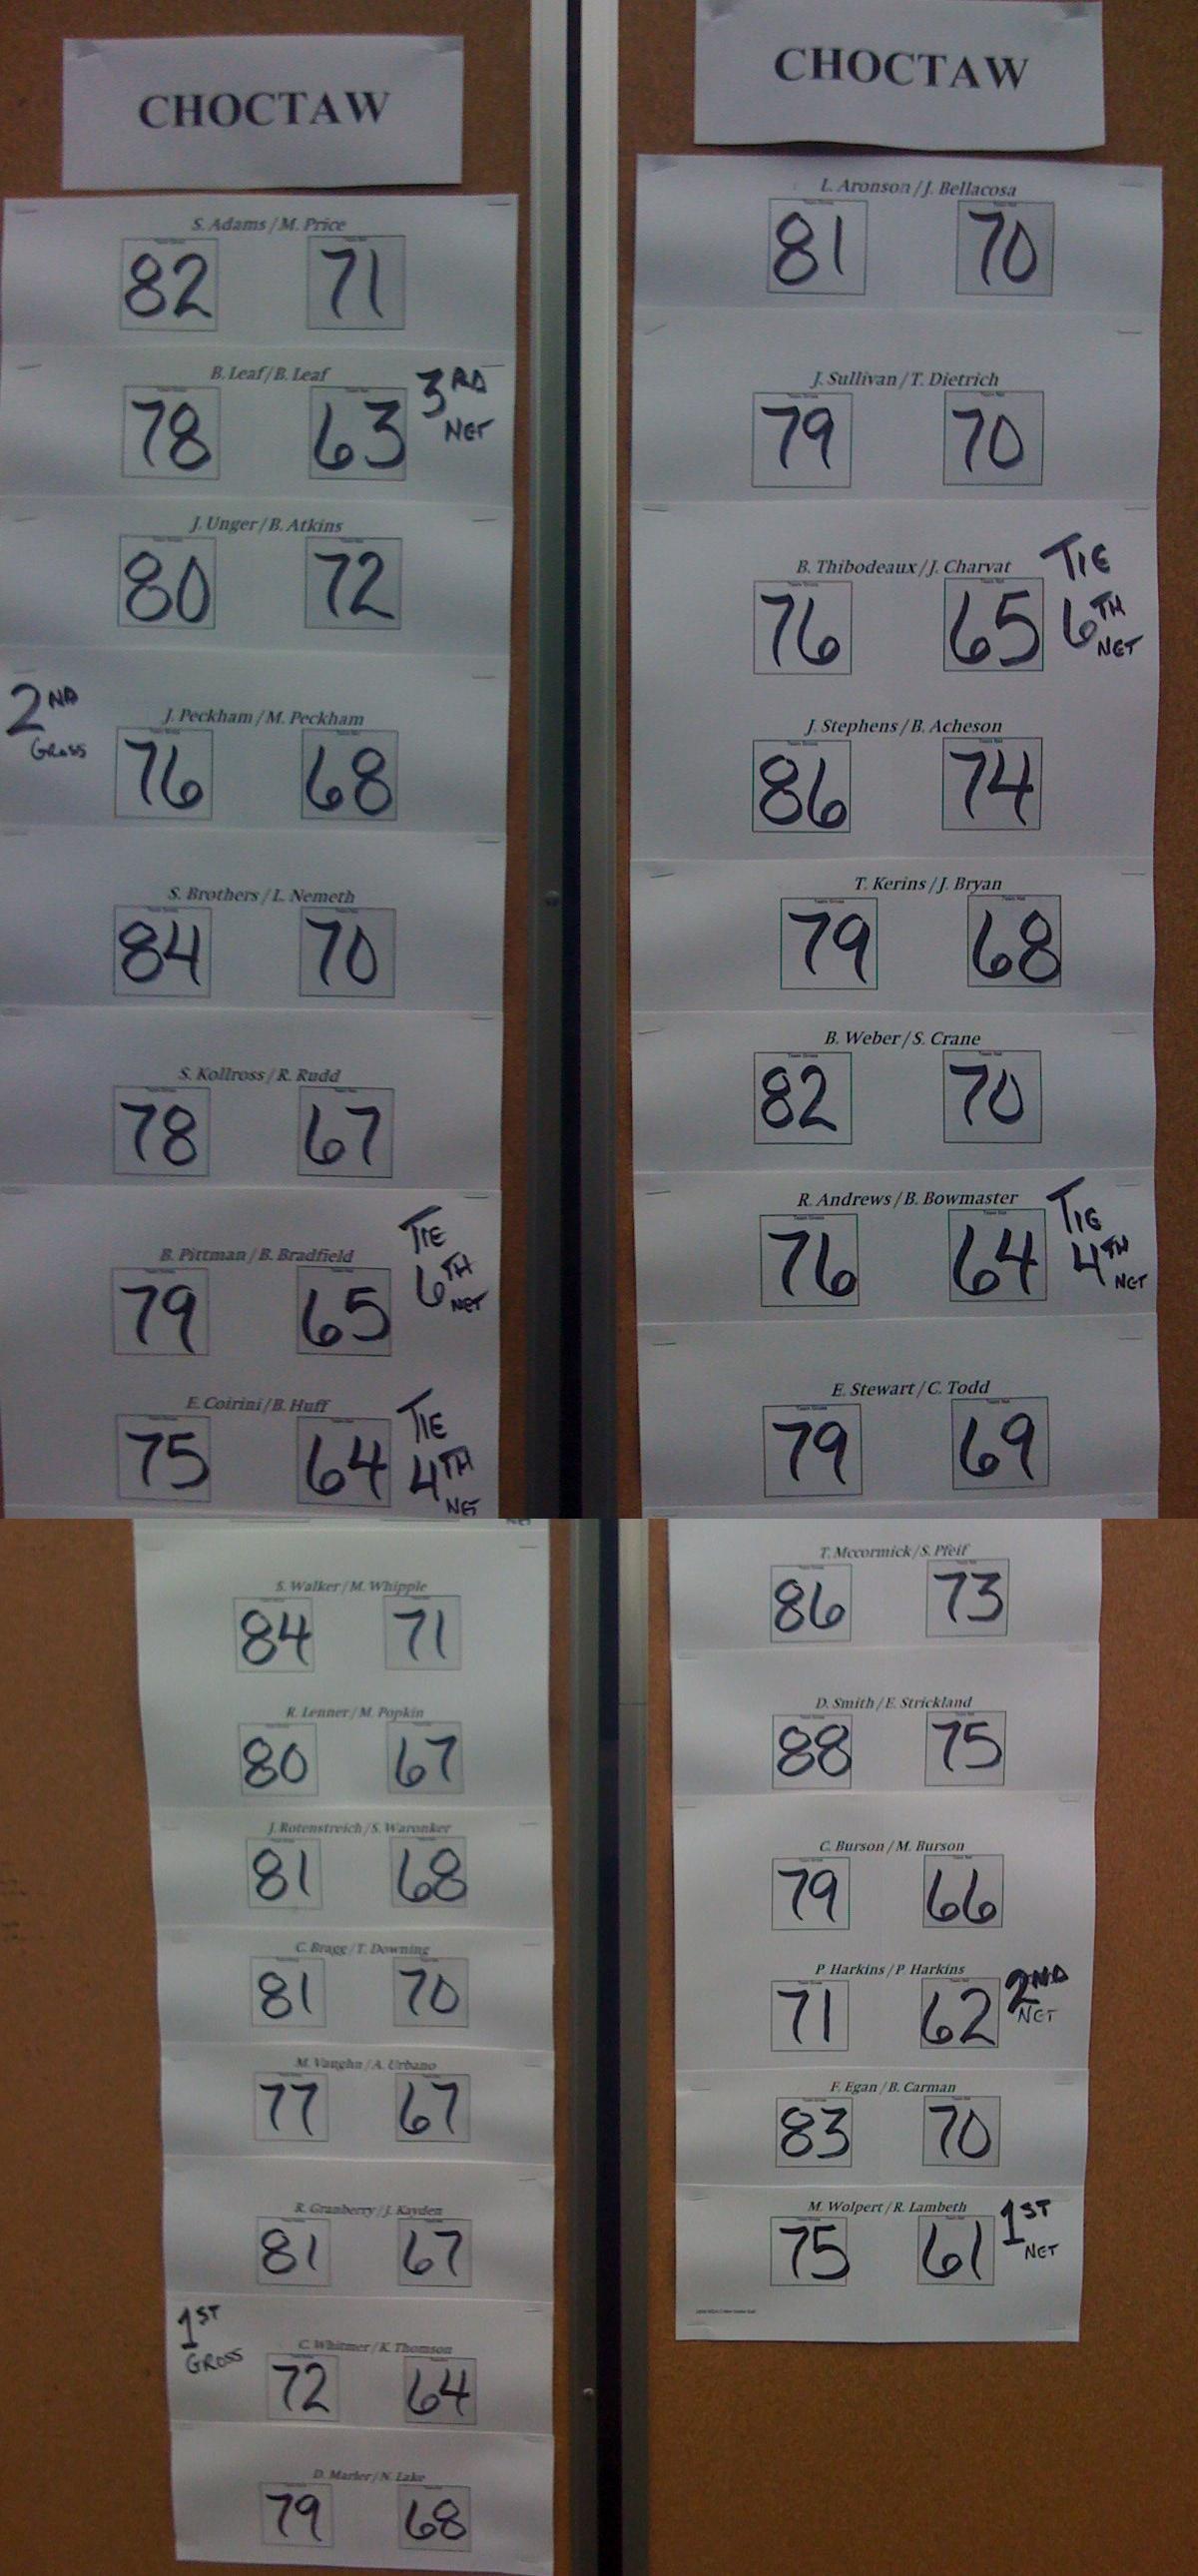 CHOCTAW
S. Adams / M. Price
82 71
B. Leaf / B. Leaf
78 63 3RD NET
J. Unger / B. Atkins
80 72
2ND GROSS
J. Peckham / M. Peckham
76 68
S. Brothers / L. Nemeth
84 70
S. Kollross / R. Rudd
78 67
B. Pittman / B. Bradfield
79 65 TIE 6TH NET
E. Coirini / B. Huff
75 64 TIE 4TH NET
CHOCTAW
L. Aronson / J. Bellacosa
81 70
J. Sullivan / T. Dietrich
79 70
B. Thibodeaux / J. Charvat
76 65 TIE 6TH NET
J. Stephens / B. Acheson
86 74
T. Kerins / J. Bryan
79 68
B. Weber / S. Crane
82 70
R. Andrews / B. Bowmaster
76 64 TIE 4TH NET
E. Stewart / C. Todd
79 69
S. Walker / M. Whipple
84 71
R. Lenner / M. Popkin
80 67
J. Rotenstreich / S. Waronker
81 68
C. Bragg / T. Downing
81 70
M. Vaughn / A. Urbano
77 67
R. Granberry / J. Kayden
81 67
1ST GROSS
C. Whitmer / K. Thomson
72 64
D. Marler / N. Lake
79 68
T. Mccormick / S. Pfeif
86 73
D. Smith / E. Strickland
88 75
C. Burson / M. Burson
79 66
P Harkins / P Harkins
71 62 2ND NET
F. Egan / B. Carman
83 70
M. Wolpert / R. Lambeth
75 61 1ST NET